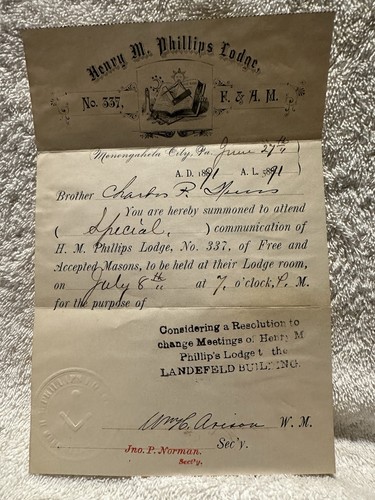 Henry M. Phillips Lodge,
No. 337, F. & A. M.
Monongahela City, Pa. June 27th
A. D. 1891 A. L. 5891
Brother Charles F.
You are hereby summoned to attend
( Special, ) communication of
H. M. Phillips Lodge, No. 337, of Free and
Accepted Masons, to be held at their Lodge room,
on July 8th at 7, o'clock, P. M.
for the purpose of
Considering a Resolution to
change Meetings of Henry M
Phillip's Lodge t the
LANDEFELD BUILDING.
Wm C. Arison W. M.
Jno. P. Norman. Sec'y.
Sect'y.